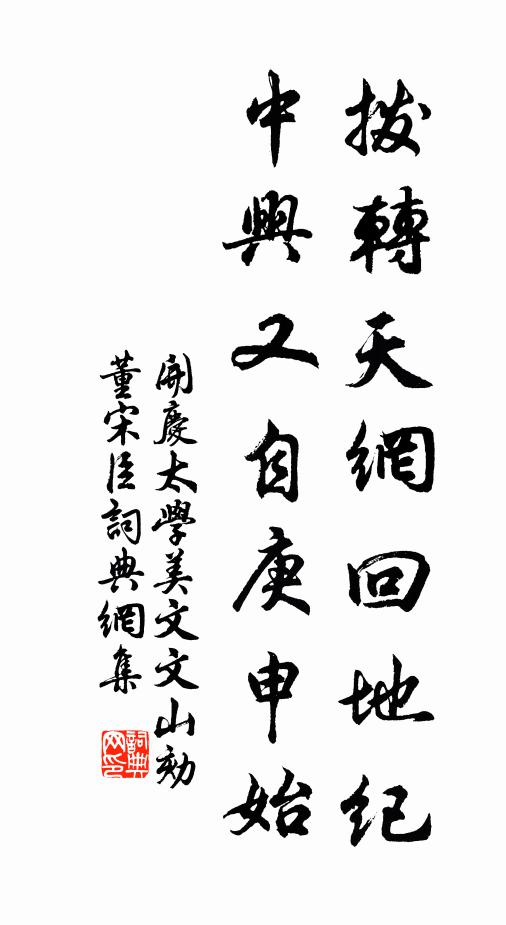 拨轉天網回地紀
中興又自庚申始
開慶太學美文文山劾
董宋臣詞典網集
詞典網印